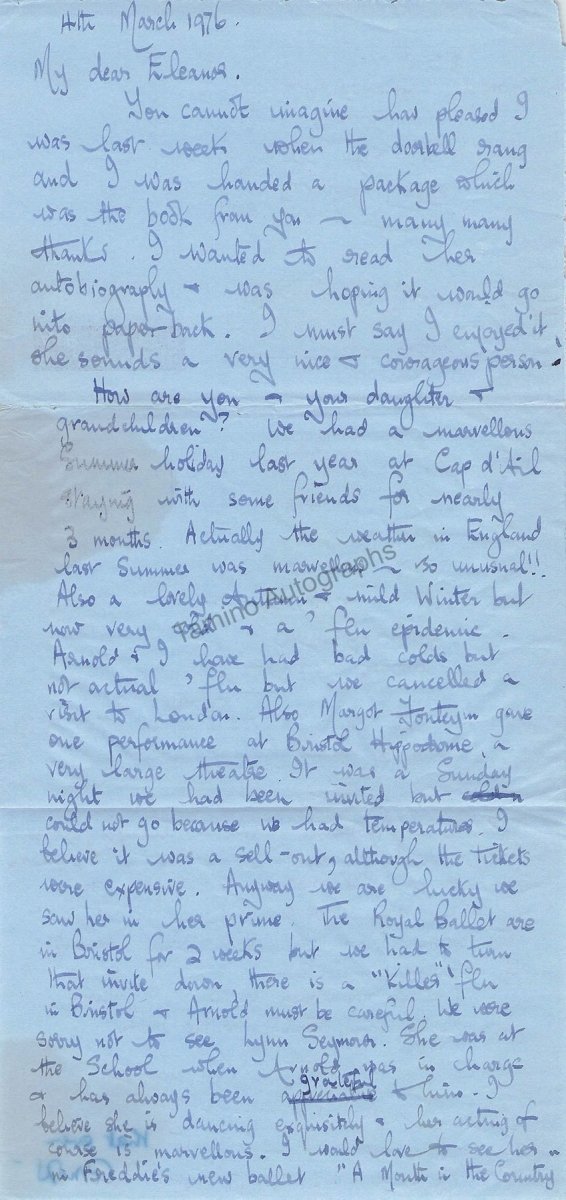 4th March 1976.
My dear Eleanor.
You cannot imagine how pleased I
was last week when the doorbell rang
and I was handed a package which
was the book from you — many many
thanks. I wanted to read her
autobiography & was hoping it would go
into paper back. I must say I enjoyed it,
she sounds a very nice & courageous person.
How are you & your daughter &
grandchildren? We had a marvellous
Summer holiday last year at Cap d'Ail
staying with some friends for nearly
3 months. Actually the weather in England
last Summer was marvellous — so unusual!!
Also a lovely Autumn & mild Winter but
now very & a 'flu epidemic.
Arnold & I have had bad colds but
not actual 'flu but we cancelled a
visit to London. Also Margot Fonteyn gave
one performance at Bristol Hippodrome, a
very large theatre. It was a Sunday
night we had been invited but
could not go because we had temperatures. I
believe it was a sell-out, although the tickets
were expensive. Anyway we are lucky we
saw her in her prime. The Royal Ballet are
in Bristol for 2 weeks but we had to turn
that invite down, there is a "Killer" 'flu
in Bristol & Arnold must be careful. We were
sorry not to see Lynn Seymour. She was at
the School when Arnold was in charge
& has always been grateful to him. I
believe she is dancing exquisitely & her acting of
course is marvellous. I would love to see her
in Freddie's new ballet "A Month in the Country
Tamino Autographs